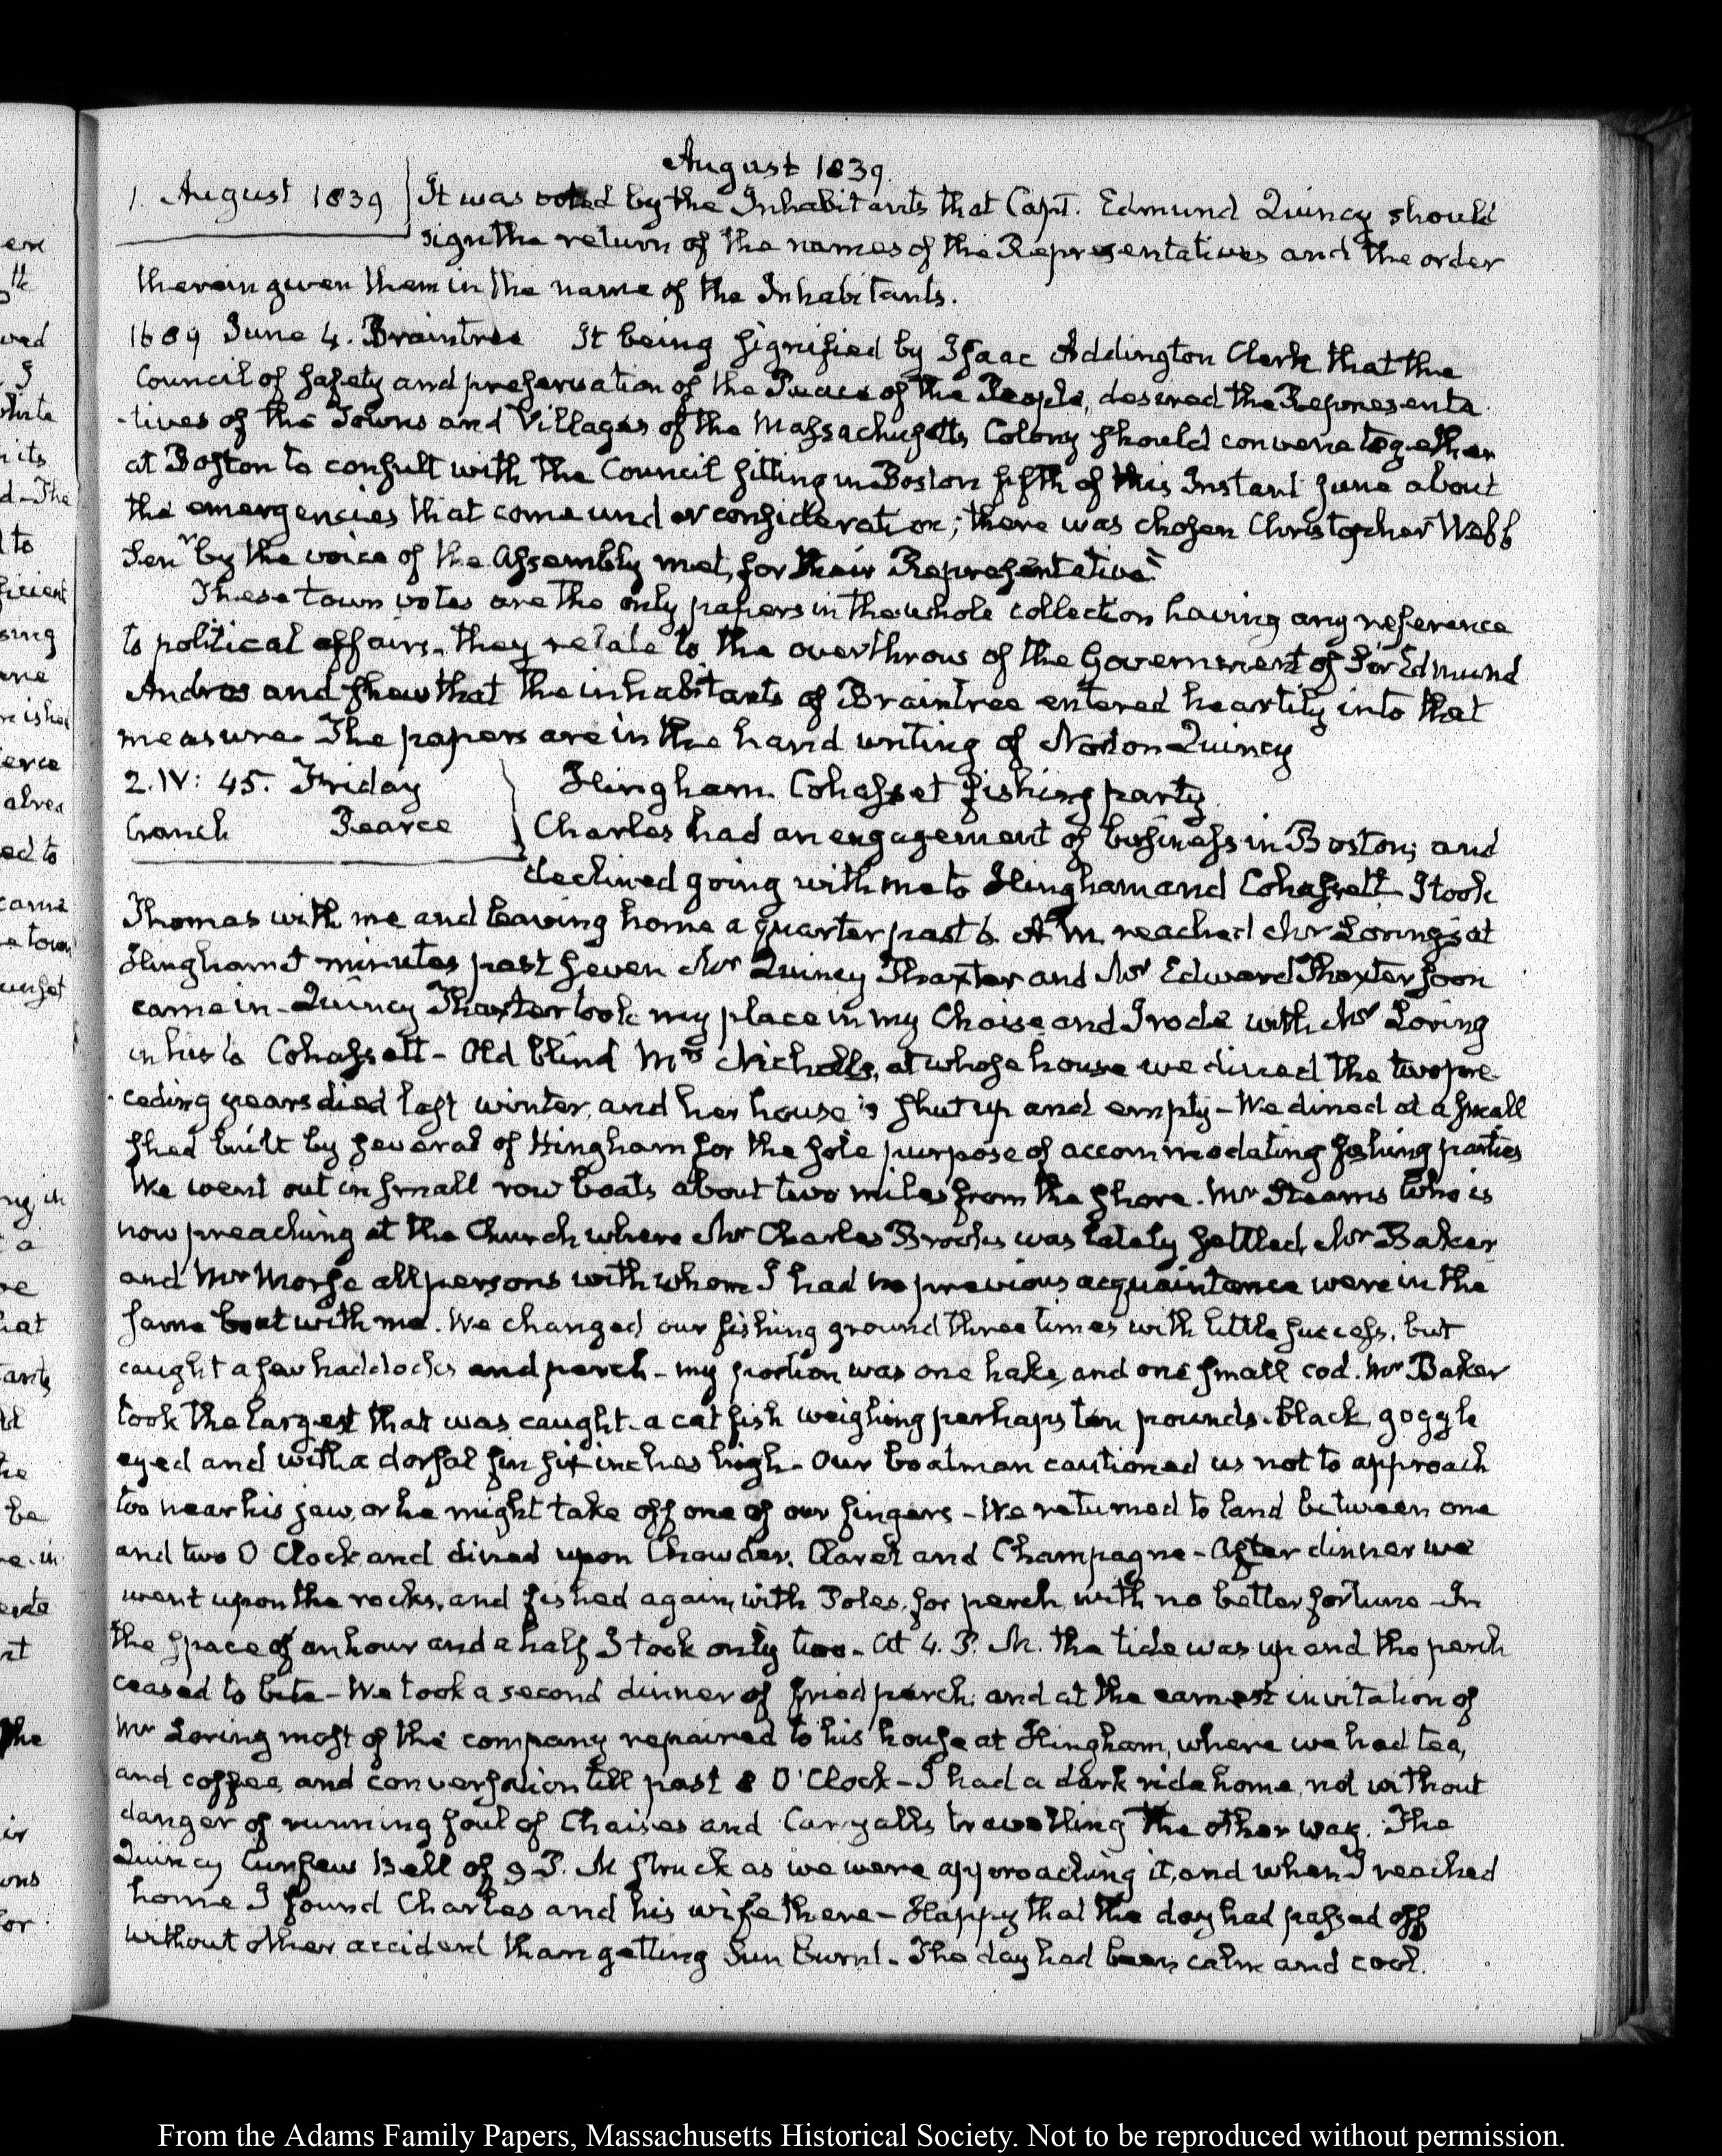 August 1839.
1. August 1839 It was voted by the Inhabitants that Capt. Edmund Quincy should
sign the return of the names of the Representatives and the order
therein given them in the name of the Inhabitants.
1689 June 4. Braintree It being signified by Isaac Addington Clerk that the
Council of safety and preservation of the Peace of the People, desired the Representa
-tives of the Towns and Villages of the Massachusetts Colony should convene together
at Boston to consult with the Council sitting in Boston fifth of this Instant June about
the emergencies that come under consideration; there was chosen Christopher Webb
Senr by the voice of the Assembly met, for their Representative"
These town votes are the only papers in the whole collection having any reference
to political affairs. they relate to the overthrow of the Government of Sir Edmund
Andros and shew that the inhabitants of Braintree entered heartily into that
measure. The papers are in the hand writing of Norton Quincy
2. IV: 45. Friday Hingham. Cohasset fishing party
Cranch Pearce Charles had an engagement of business in Boston; and
declined going with me to Hingham and Cohassett. I took
Thomas with me and leaving home a quarter past 6. A.M. reached Mr Loring's at
Hingham 5 minutes past seven Mr Quincy Thaxter and Mr Edward Thaxter soon
came in - Quincy Thaxter took my place in my Chaise and I rode with Mr Loring
in his to Cohassett - Old blind Mrs Nicholls, at whose house we dined the two pre-
ceding years died last winter, and her house is shut up and empty - We dined at a small
shed built by several of Hingham for the sole purpose of accommodating fishing parties
We went out in small row boats about two miles from the shore. Mr Stearns who is
now preaching at the Church where Mr Charles Brooks was lately settled, Mr Baker
and Mr Morse all persons with whom I had no previous acquaintance were in the
same boat with me. We changed our fishing ground three times with little success, but
caught a few haddocks and perch - my portion was one hake, and one small cod. Mr Baker
took the largest that was caught. a cat fish weighing perhaps ten pounds. black, goggle
eyed and with a dorsal fin six inches high - Our boatman cautioned us not to approach
too near his jaw, or he might take off one of our fingers - We returned to land between one
and two O Clock and dined upon Chowder, Claret and Champagne - After dinner we
went upon the rocks, and fished again, with Poles, for perch, with no better fortune - In
the space of an hour and a half I took only two - At 4. P. M. the tide was up and the perch
ceased to bite - We took a second dinner of fried perch, and at the earnest invitation of
Mr Loring most of the company repaired to his house at Hingham, where we had tea,
and coffee, and conversation till past 8 O'Clock - I had a dark ride home, not without
danger of running foul of Chaises and Carryalls travelling the other way. The
Quincy Curfew Bell of 9 P. M struck as we were approaching it, and when I reached
home I found Charles and his wife there - Happy that the day had passed off
without other accident than getting Sun burnt - The day had been calm and cool.
From the Adams Family Papers, Massachusetts Historical Society. Not to be reproduced without permission.